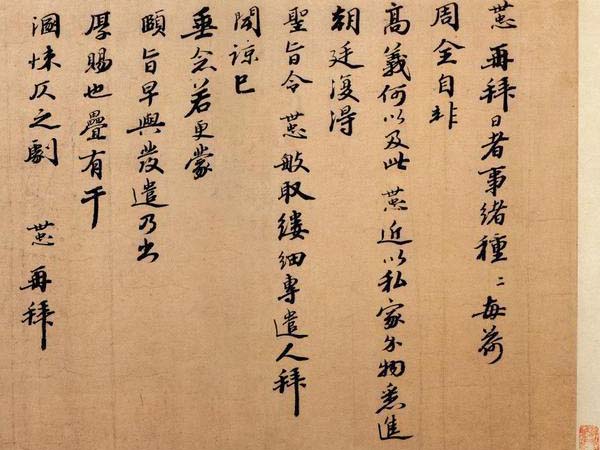 再拜日者事緒種〻每荷
周全自非
高義何以及此 近以私家尔物悉進
朝廷復得
聖旨令 敏取縷細專遣人拜
聞諒已
垂念若更蒙
頤旨早與發遣乃出
厚賜也疊有干
溷悚仄之劇 再拜